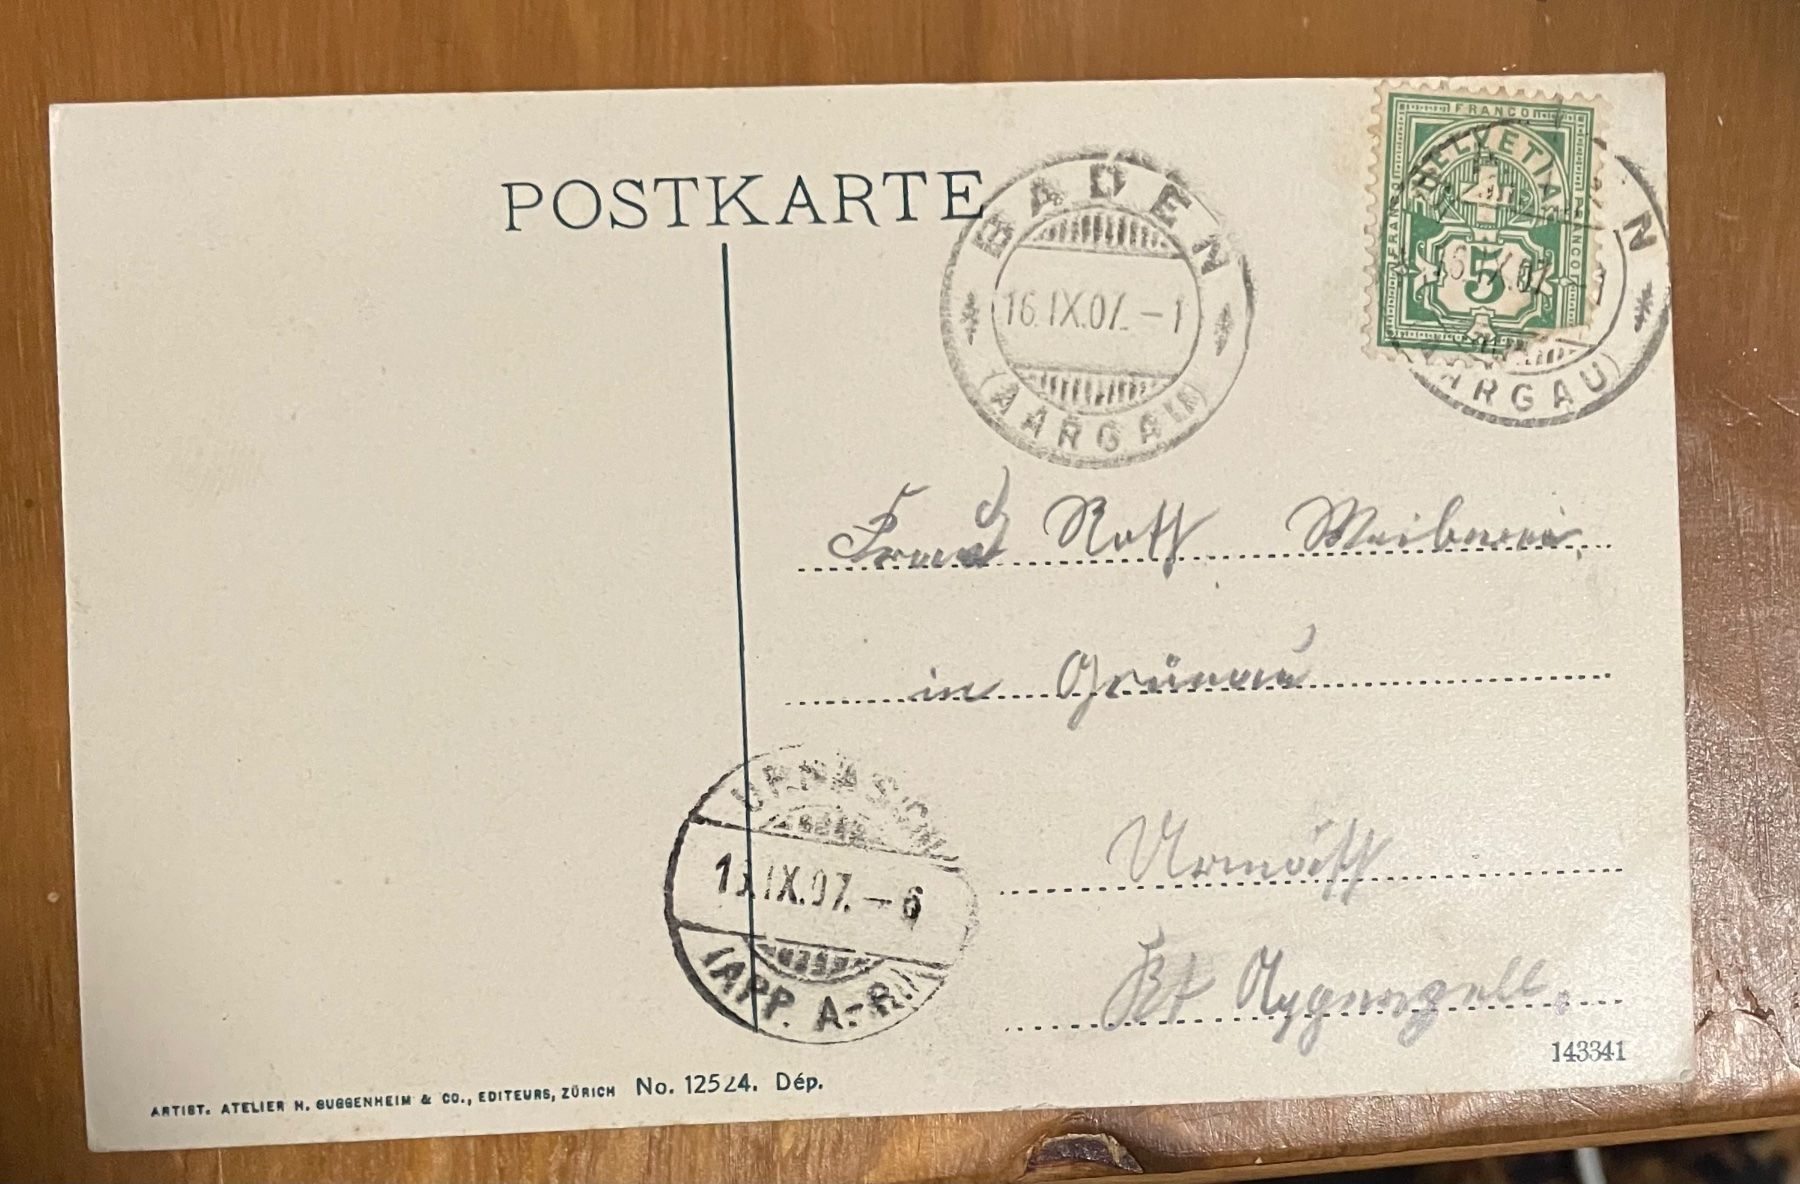 POSTKARTE
BADEN
16.IX.07.-1
(AARGAU)
FRANCO
HELVETIA
FRANCO
FRANCO
5
N
16.IX.07.-1
(AARGAU)
Roth
in Grünau
Urnäsch
Kt Appenzell.
URNÄSCH
IX.07.-6
(APP. A.-RH.)
143341
ARTIST. ATELIER H. GUGGENHEIM & CO., EDITEURS, ZÜRICH No. 12524. Dép.